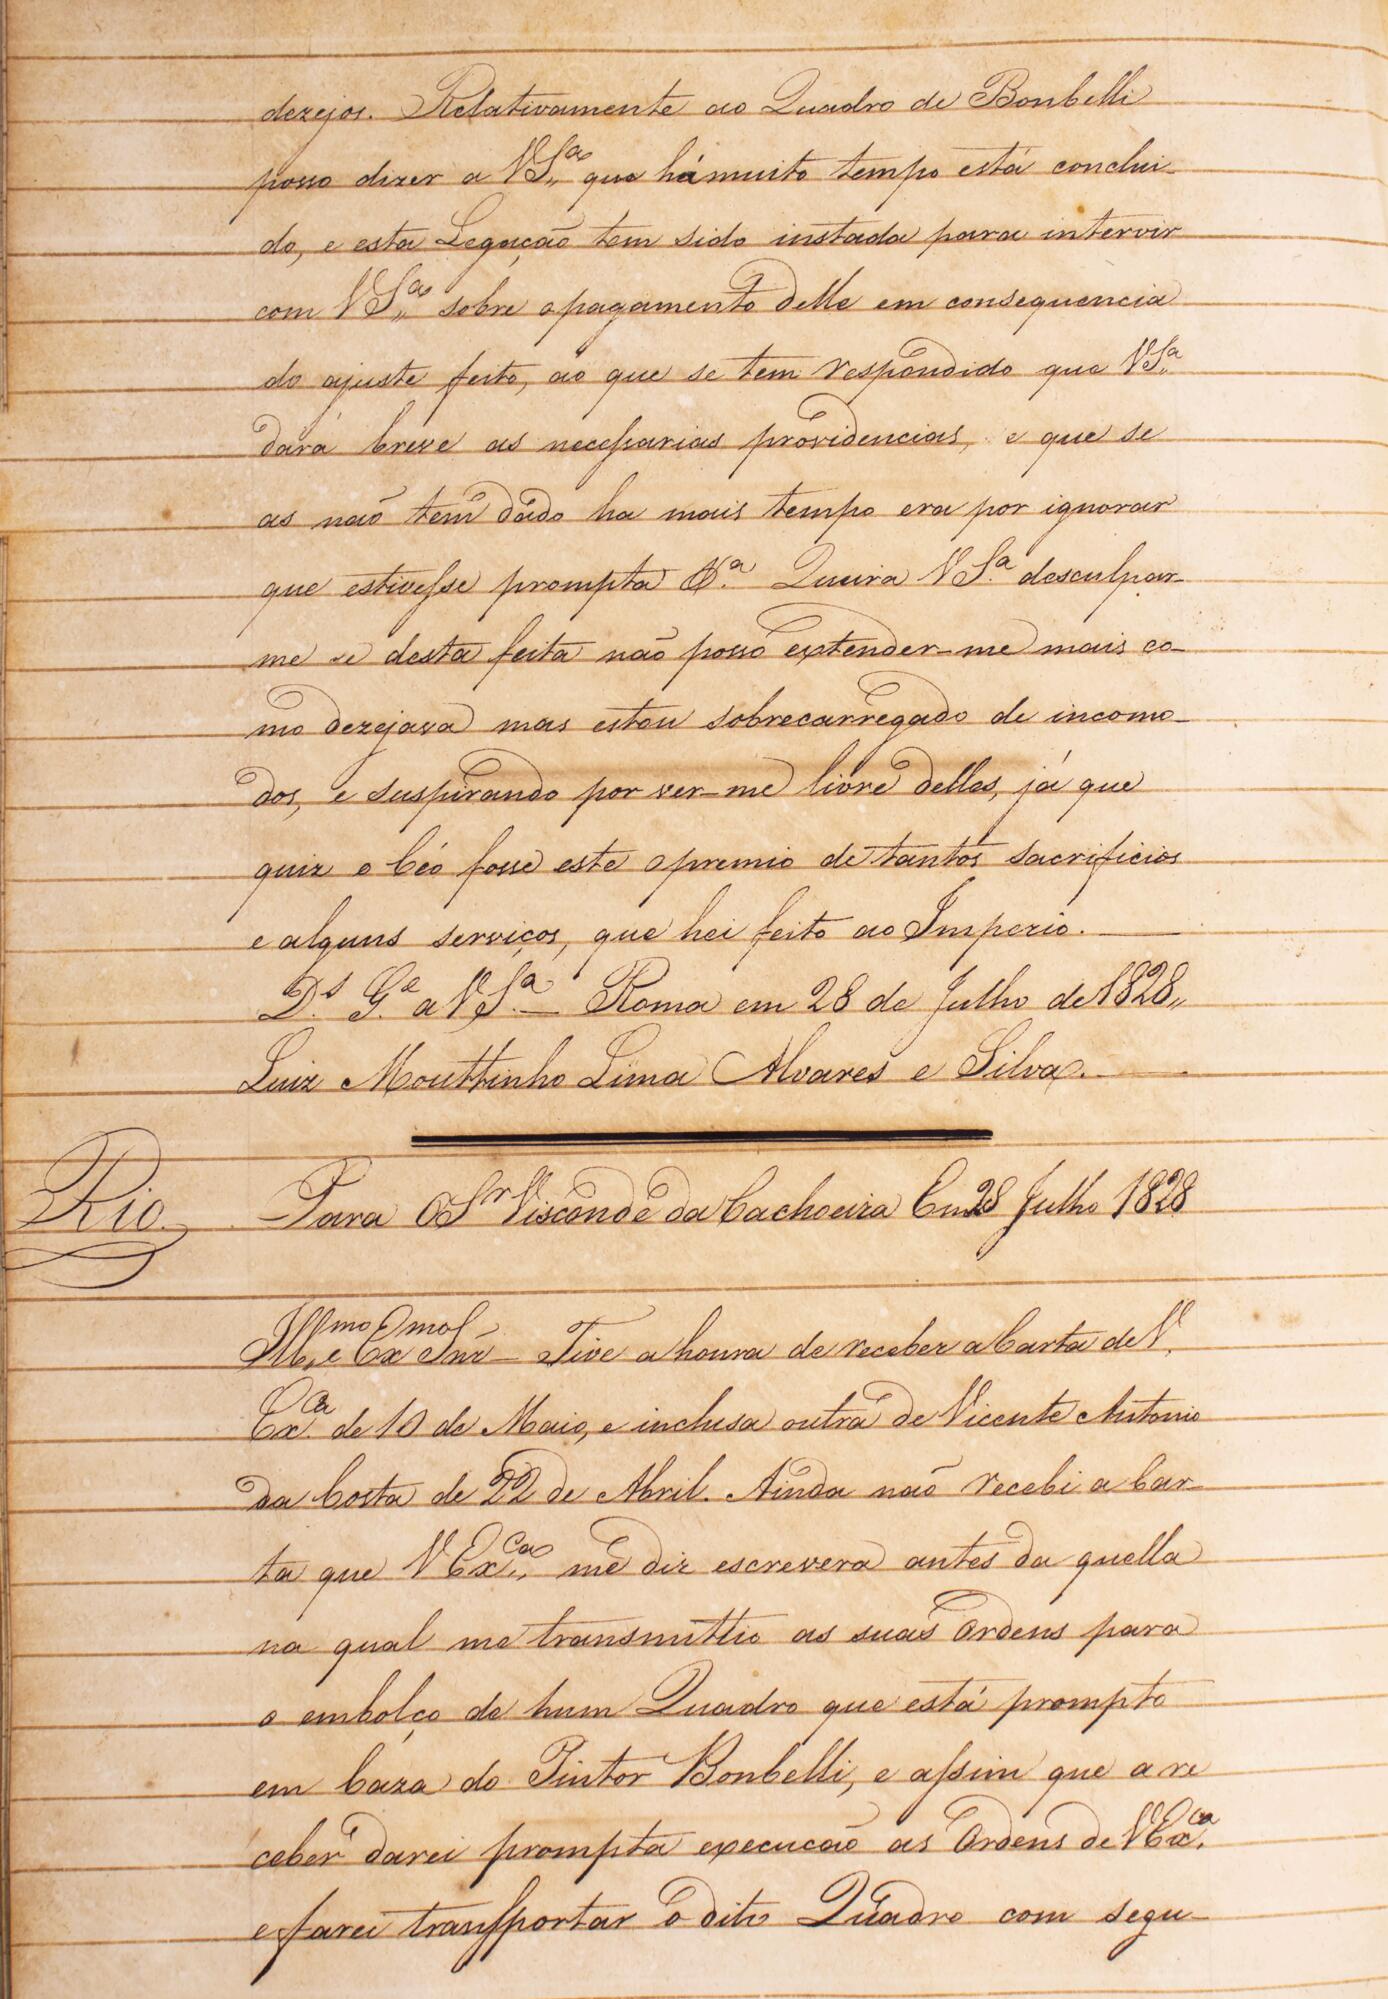 dezejos. Relativamente ao Quadro de Bonbelli
posso dizer a VSª que hámuito tempo está conclui-
do, e esta Legação tem sido instada para intervir
com VSª sobre o pagamento delle em consequencia
do ajuste feito, ao que se tem respondido que VSª
dará breve as necessarias providencias, e que se
as não tem dado ha mais tempo era por ignorar
que estivesse prompta &ª. Queira VSª desculpar-
me se desta feita não posso extender-me mais co-
mo dezejava mas estou sobrecarregado de incomo-
dos, e suspirando por ver-me livre delles, já que
quiz o Céo fosse este o premio de tantos sacrificios
e alguns serviços, que hei feito ao Imperio. —
Dˢ Gᵉ a VSª — Roma em 28 de Julho de 1828,,
Luiz Mouttinho Lima Alvares e Silva. —
Rio
Para O Sʳ Visconde da Cachoeira Em 28 Julho 1828
Illᵐᵒ e Exᵐᵒ Snr̃ — Tive a honra de receber a Carta de V.
Exᶜᵃ de 10 de Maio, e inclusa outra de Vicente Antonio
da Costa de 22 de Abril. Ainda não recebi a Car-
ta que V Exᶜᵃ me diz escrevera antes da quella
na qual me transmittio as suas Ordens para
o embolço de hum Quadro que está prompto
em Caza do Pintor Bonbelli, e assim que a re
ceber darei prompta execucão as Ordens de VExᶜᵃ
e farei transportar o dito Quadro com segu-